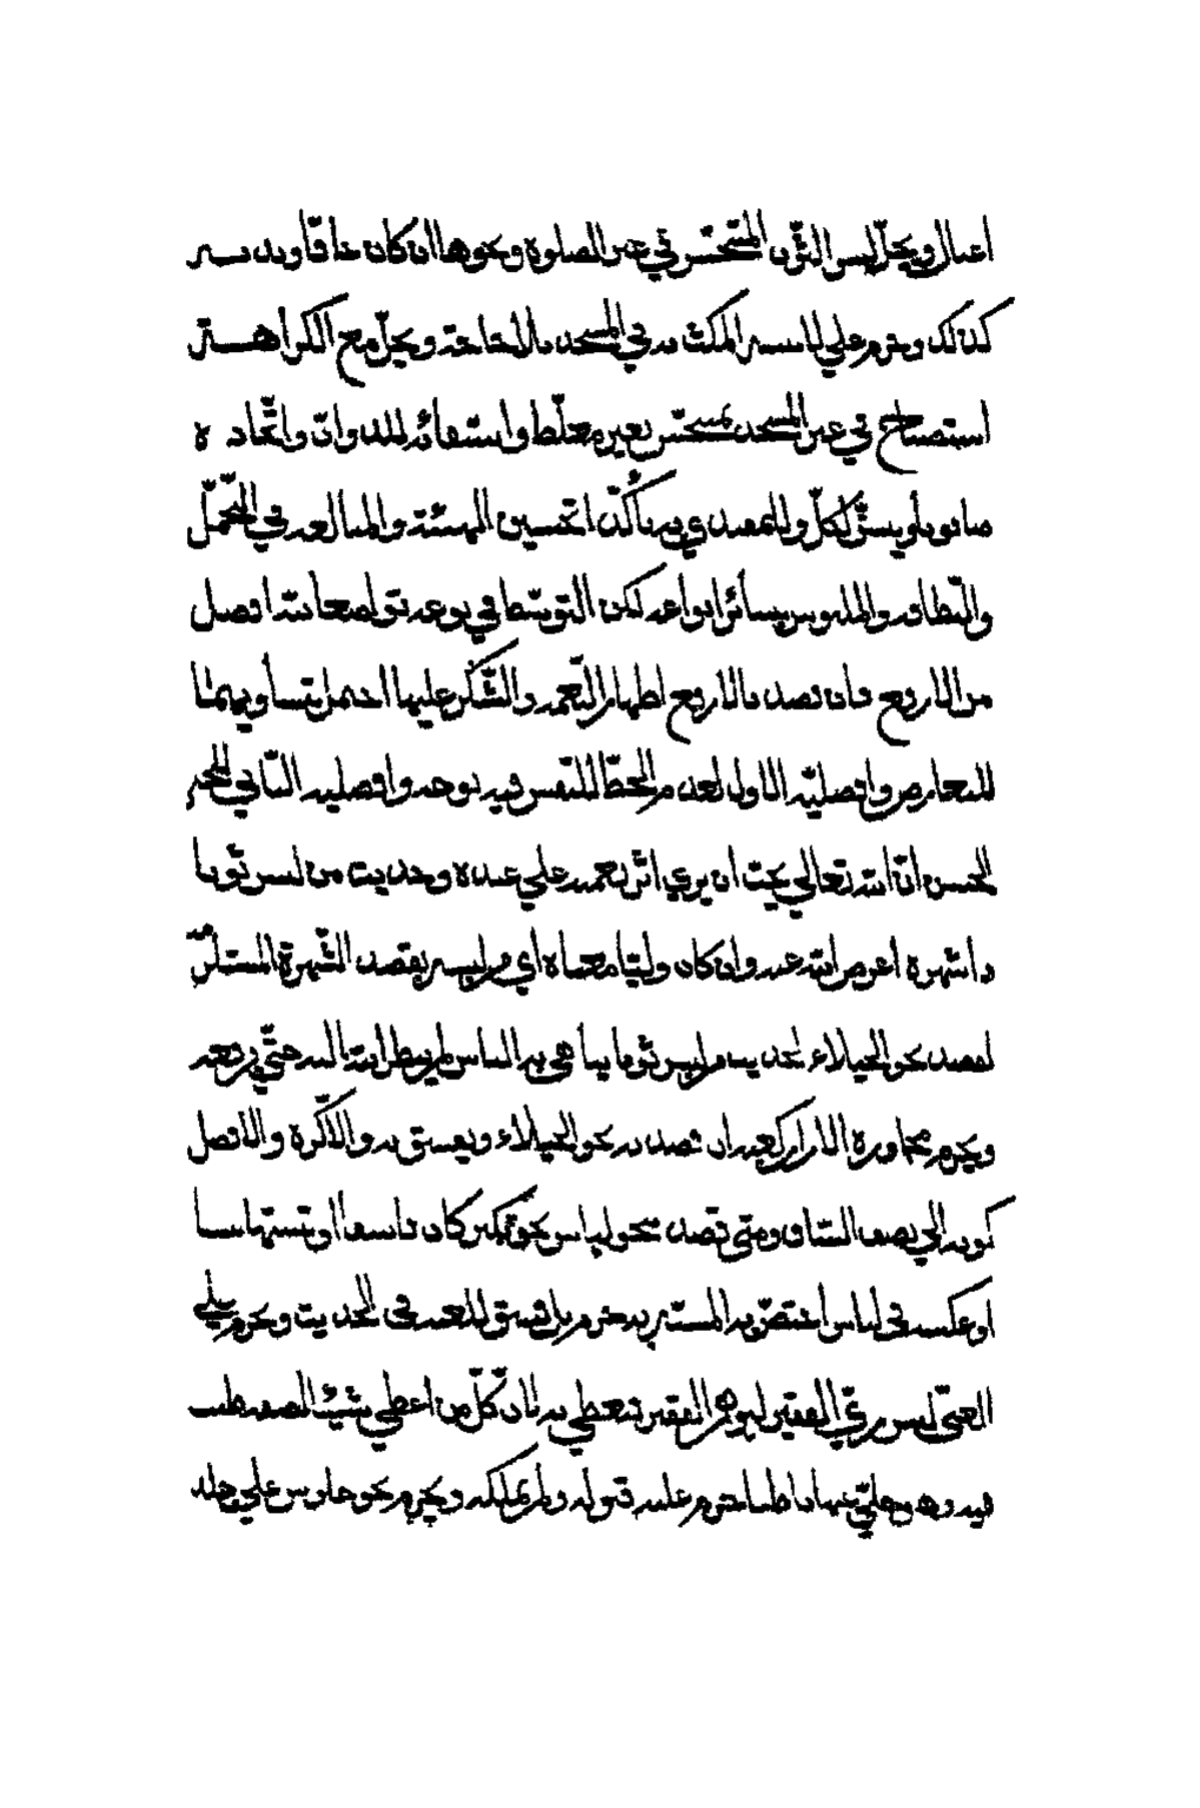 اعتيال ويحلّ لبس الثّوب المتنجّس في غير الصلوة ونحوها ان كان جافّا وبدنه
كذلك ويحرم على لابسه المكث به في المسجد بلا حاجة ويحلّ مع الكراهة
استصباح في غير المسجد بمتنجّس بغير مغلّظ واستقائه للدوابّ واتّخاذه
صابونا ويسنّ لكلّ والمقتدى به تأكّد تحسين الهيئة والمبالغة في التجمّل
والنّظافة والملبوس بسائر انواعه لكن التوسّط في نوعه تواضعا لله افضل
من الارفع فان قصد بالارفع اظهار النّعمة والشّكر عليها احتمل تساويهما
للتعارض وافضليّة الاول لعدم الحظّ للنّفس فيه بوجه وافضلية الثّاني للخبر
الحسن انّ الله تعالى يحبّ ان يرى اثر نعمته على عبده وحديث من لبس ثوبا
ذا شهرة اعرض الله عنه وان كان وليّا معناه اي من لبسه بقصد الشّهرة المستلزمة
لقصد نحو الخيلاء لحديث من لبس ثوبا يباهي به الناس لم ينظر الله اليه حتّى يرفعه
ويحرم مجاوزة الازار كعبه ان قصد به نحو الخيلاء ويفسق به والّا كره والافضل
كونه الى نصف الساق ومتى قصد نحو لباس نحو تكبّر كان فاسقا او تشبّها بنساء
او عكسه في لباس اختصّ به المتشبّه به حرم بل فسق للعنه في الحديث ويحرم على
الغنيّ لبس زيّ الفقير ليوهم الفقر فيعطى به لانّ كلّ من اعطي شيئا لصفة ظنّت
فيه وهو خليّ عنها باطنا حرم عليه قبوله ولم يملكه ويحرم نحو جلوس على جلد